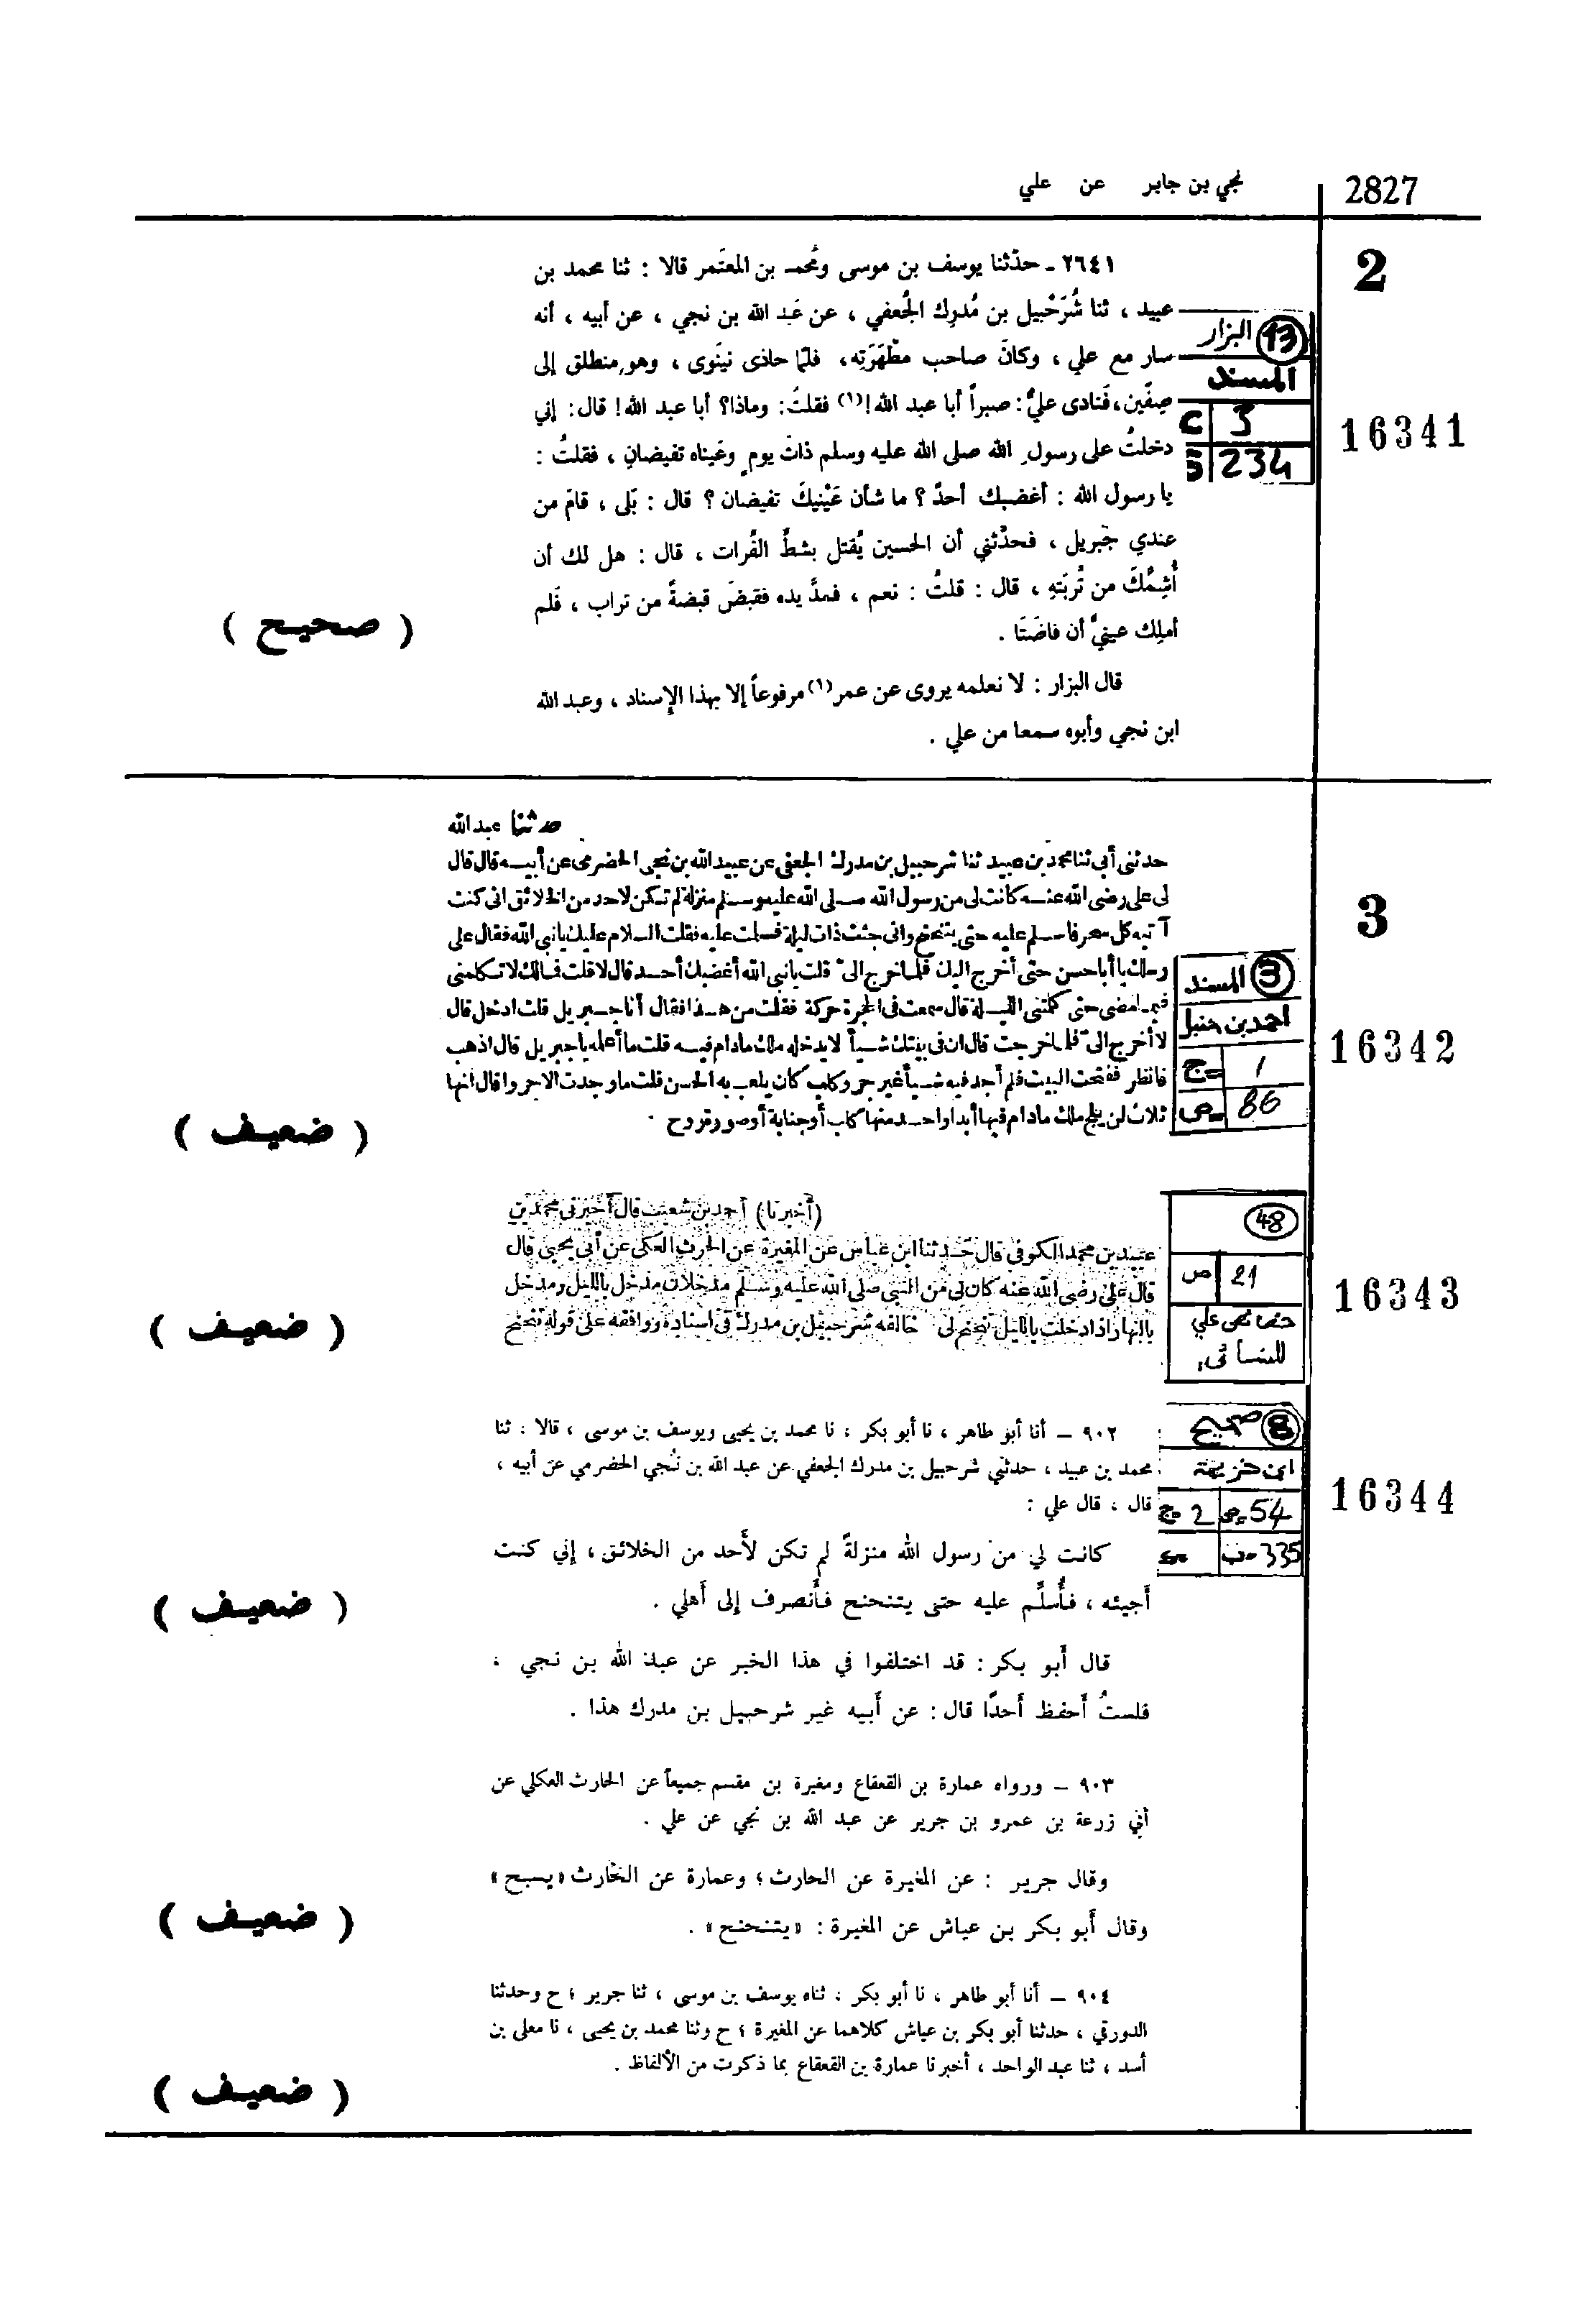 2827
نجي بن جابر عن علي
2
٢٦٤١ ـ حدّثنا يوسف بن موسى ومُحمد بن المعتَمر قالا : ثنا محمد بن
عبيد ، ثنا شُرَحْبيل بن مُدرِك الجُعفي ، عن عَبد الله بن نجي ، عن أبيه ، أنه
سار مع علي ، وكانَ صاحب مطْهَرَتِه، فلمّا حاذى نينَوى ، وهو منطلق إلى
صِفّين، فَنادى عليٌّ: صبراً أبا عبد الله!(١) فقلتُ: وماذا؟ أبا عبد الله! قال: إني
دخلتُ على رسول الله صلى الله عليه وسلم ذاتَ يوم وعَيناه تفيضانِ ، فقلتُ :
يا رسولَ الله : أغضبك أحدٌ ؟ ما شأن عَيْنيكَ تفيضان ؟ قال : بَلى ، قامَ من
عندي جَبريل ، فحدّثني أن الحسين يُقتل بشطِّ الفُرات ، قال : هل لك أن
أُشِمَّكَ من تُربَتهِ ، قال : قلتُ : نعم ، فمدَّ يده فقبضَ قبضةً من تراب ، فَلم
أملِك عينيَّ أن فاضَتَا .
( صحيح )
قال البزار : لا نعلمه يروى عن عمر(١) مرفوعاً إلا بهذا الإسناد ، وعبد الله
ابن نجي وأبوه سمعا من علي .
13 البزار
المسند
3
234
16341
3
حدثنا عبدالله
حدثنى أبى ثنا محمد بن عبيد ثنا شرحبيل بن مدرك الجعفى عن عبد الله بن نجى الحضرمى عن أبيه قال قال
لى على رضى الله عنه كانت لى من رسول الله صلى الله عليه وسلم منزلة لم تكن لاحد من الخلائق انى كنت
آتيه كل سحر فاسلم عليه حتى يتنحنح وانى جئت ذات ليلة فسلمت عليه فقلت السلام عليك يانبى الله فقال على
رسلك يا أبا حسن حتى أخرج اليك فلما خرج الىّ قلت يانبى الله أغضبك أحد قال لا قلت فمالك لا تكلمنى
فيما مضى حتى كلمتنى الليلة قال سمعت فى الحجرة حركة فقلت من هذا فقال أنا جبريل قلت ادخل قال
لا أخرج الىّ فلما خرجت قال ان فى بيتك شيأ لا يدخله ملك مادام فيه قلت ما أعلمه ياجبريل قال اذهب
فانظر ففتحت البيت فلم أجد فيه شيأ غير جرو كلب كان يلعب به الحسن قلت ما وجدت الا جروا قال انها
ثلاث لن يلج ملك مادام فيها أبدا واحد منها كلب أو جنابة أو صورة روح .
( ضعيف )
3 المسند
احمد بن حنبل
ج= 1
ص= 86
16342
(أخبرنا) أحمد بن شعيب قال أخبرنى محمد بن
عبيد بن محمد الكوفي قال حدثنا ابن عياش عن المغيرة عن الحرث العكلى عن أبى يحيى قال
قال على رضى الله عنه كان لى من النبى صلى الله عليه وسلم مدخلان مدخل بالليل ومدخل
بالنهار اذا دخلت بالليل تنحنح لى خالفه شرحبيل بن مدرك فى اسناده ووافقه على قوله تنحنح
( ضعيف )
48
ص 21
خصائص علي
للنسائي
16343
٩٠٢ – أنا أبو طاهر ، نا أبو بكر ، نا محمد بن يحيى ويوسف بن موسى ، قالا : ثنا
محمد بن عبيد ، حدثني شرحبيل بن مدرك الجعفي عن عبد الله بن نُجي الحضرمي عن أبيه ،
قال ، قال علي :
كانت لي من رسول الله منزلةً لم تكن لأَحد من الخلائق ، إني كنت
أَجيئه ، فأُسلِّم عليه حتى يتنحنح فأَنصرف إلى أَهلي .
( ضعيف )
8 صحيح
ابن خزيمة
ج= 2 ص= 54
335
16344
قال أَبو بكر : قد اختلفوا في هذا الخبر عن عبد الله بن نجي ،
فلستُ أَحفظ أَحدًا قال : عن أَبيه غير شرحبيل بن مدرك هذا .
٩٠٣ – ورواه عمارة بن القعقاع ومغيرة بن مقسم جميعاً عن الحارث العكلي عن
أبي زرعة بن عمرو بن جرير عن عبد الله بن نجي عن علي .
وقال جرير : عن المغيرة عن الحارث ؛ وعمارة عن الحارث «يسبح»
وقال أَبو بكر بن عياش عن المغيرة : «يتنحنح» .
( ضعيف )
٩٠٤ – أنا أبو طاهر ، نا أبو بكر : ثناه يوسف بن موسى ، ثنا جرير ؛ ح وحدثنا
الدورقي ، حدثنا أبو بكر بن عياش كلاهما عن المغيرة ؛ ح وثنا محمد بن يحيى ، نا معلى بن
أسد ، ثنا عبد الواحد ، أخبرنا عمارة بن القعقاع بما ذكرت من الألفاظ .
( ضعيف )